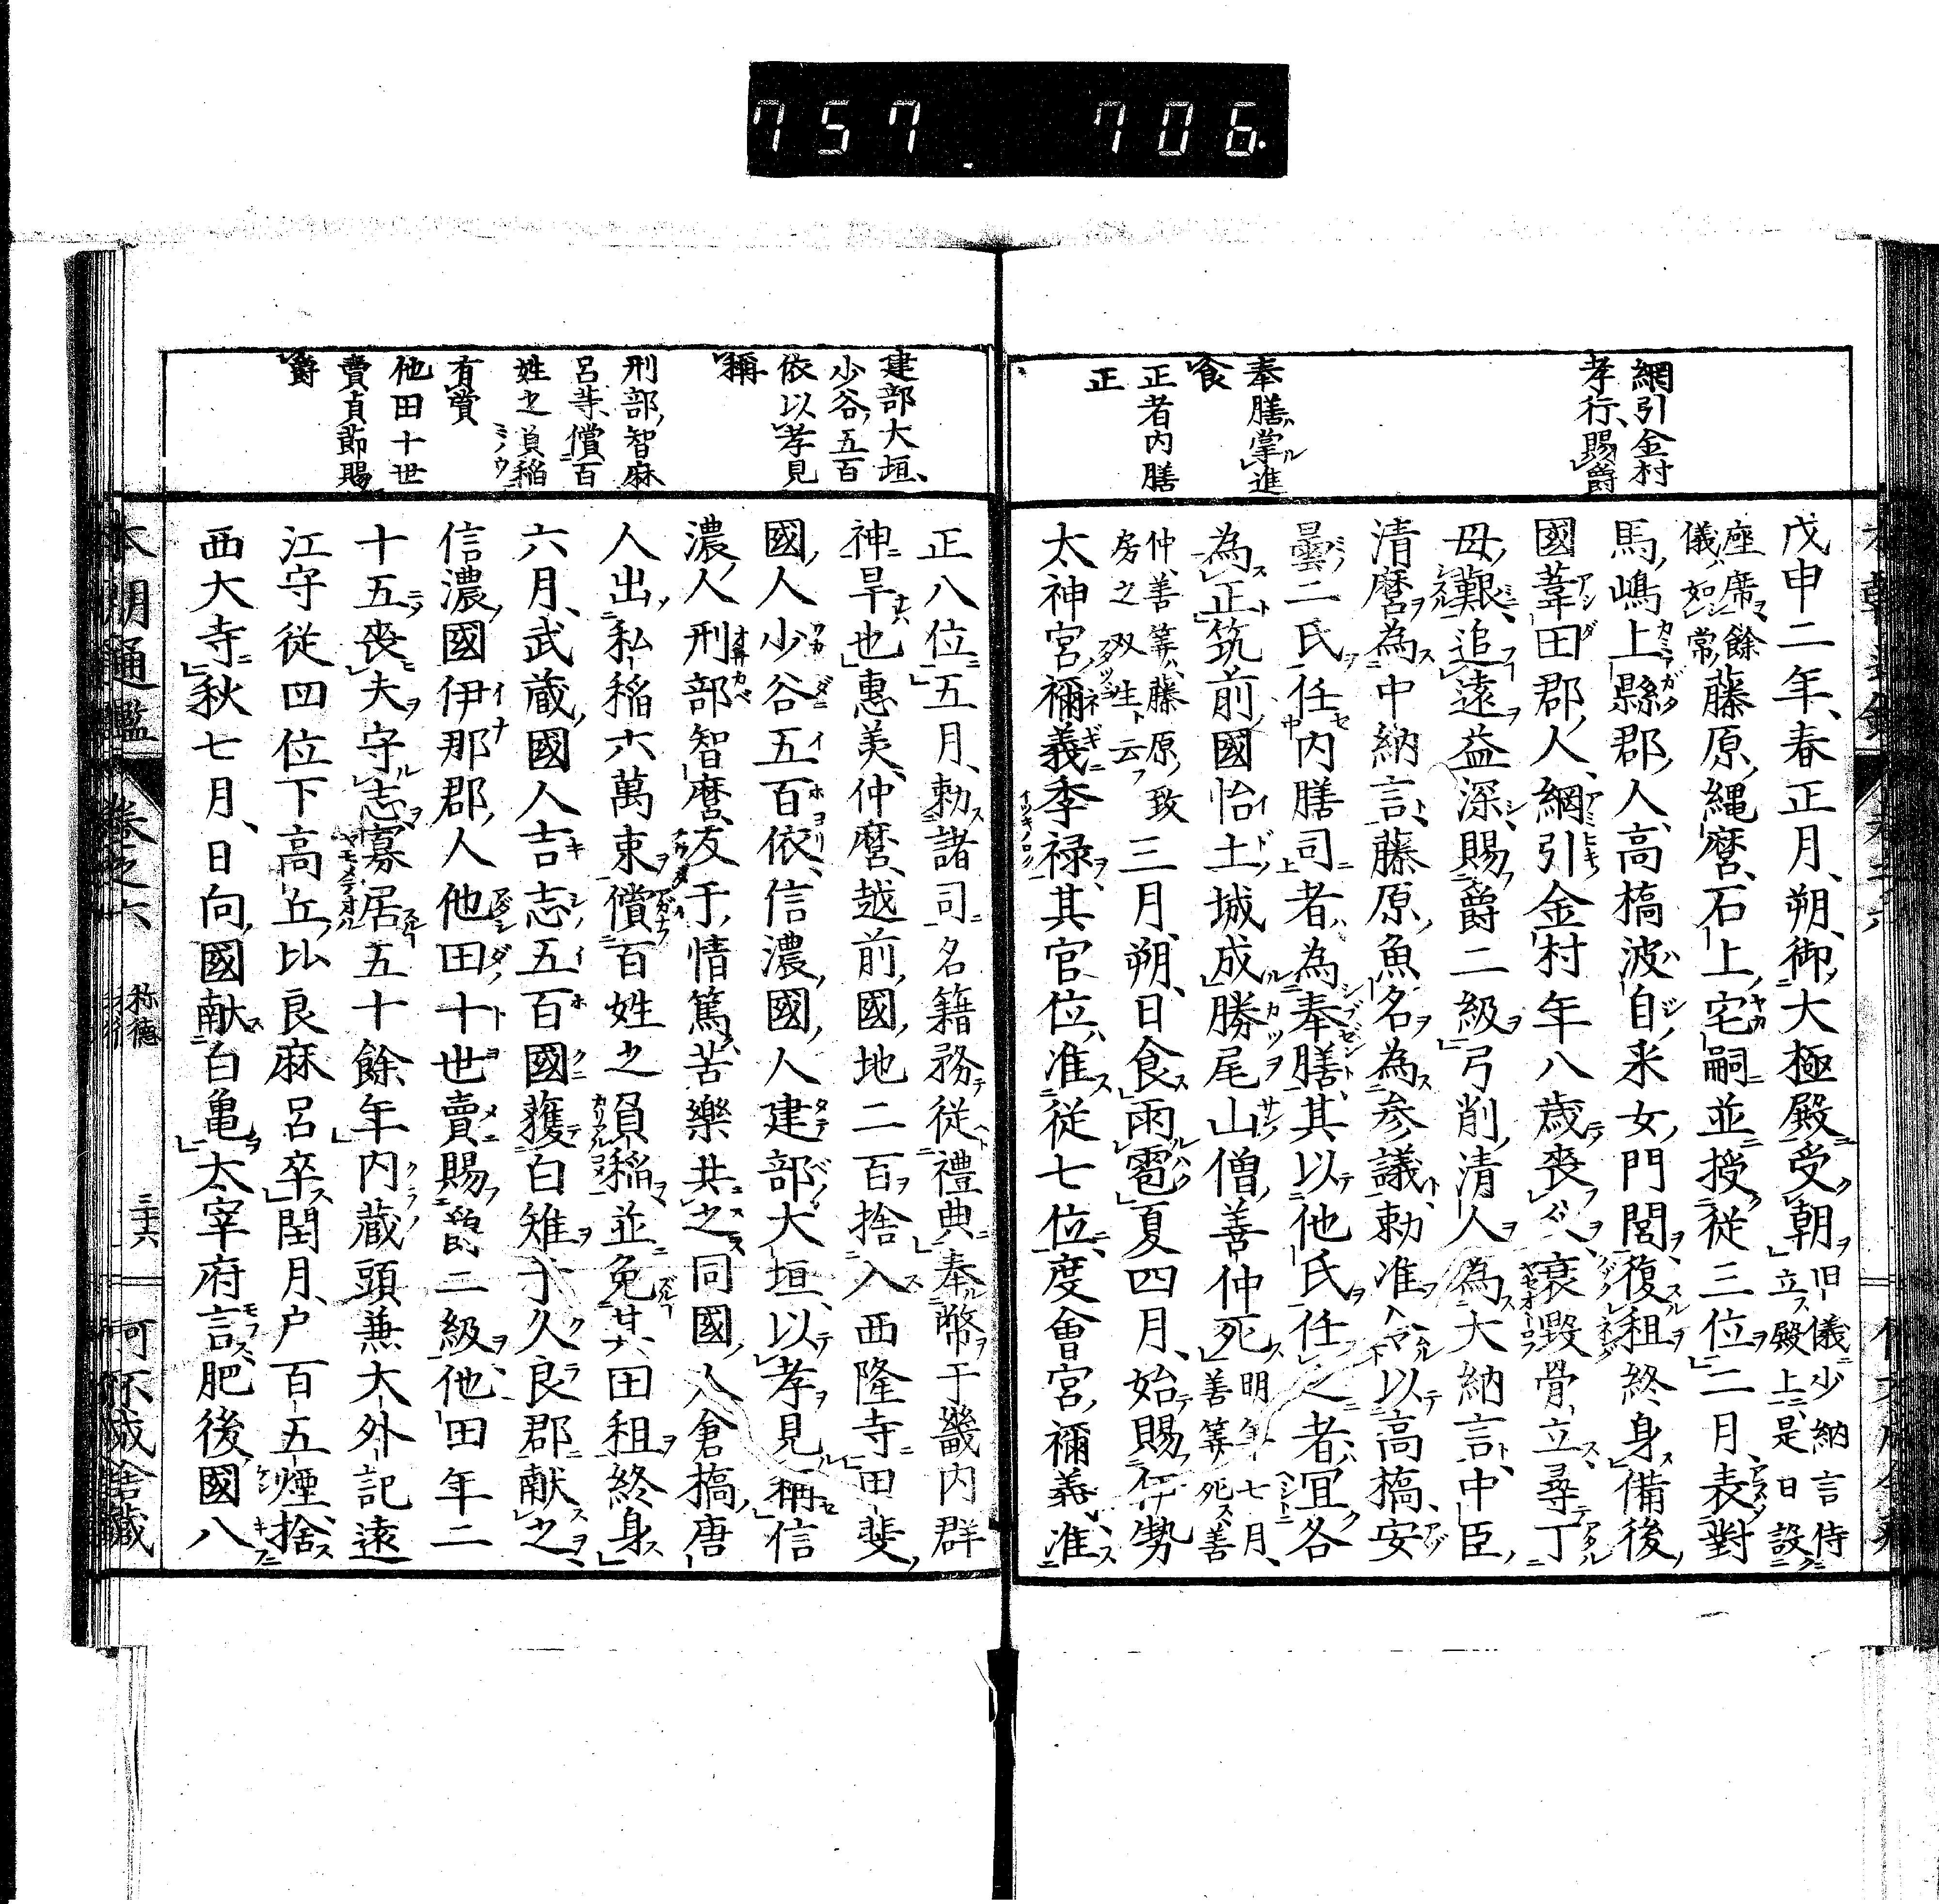 757 706
網引金村
孝行賜爵
奉膳掌進
食
正者内膳
正
戊申二年、春正月、朔、御大極殿受朝旧儀少納言侍立殿上、是日設
座席餘儀如常藤原縄麿、石上宅嗣並授從三位二月、表對
馬嶋上縣郡人高橋波自米女門閭復租終身備後
國葦田郡人網引金村年八歳喪父衰毀骨立尋丁
母艱追遠益深賜爵二級弓削清人為大納言中臣
清麿為中納言藤原魚名為参議勅准令以高橋安
曇二氏任内膳司者為奉膳其以他氏任之者宜各
為正筑前國怡土城成勝尾山僧善仲死明年七月、善筭死善
仲善筭藤原致房之双生云三月、朔、日食雨雹夏四月、始賜伊勢
太神宮禰義季禄其官位准從七位度會宮禰義准
建部大垣、
少谷五百
依以孝見
稱
刑部智麻
呂等償百
姓之負稲
有賞
他田十世
賣貞節賜
爵
正八位五月、勅諸司名籍務從禮典奉幣于畿内群
神旱也惠美仲麿越前國地二百捨入西隆寺田斐
國人少谷五百依信濃國人建部大垣以孝見稱信
濃人刑部智麿友于情篤苦樂共之同國人倉橋唐
人出私稲六萬束償百姓之負稲並免其田租終身
六月、武蔵國人吉志五百國獲白雉于久良郡献之
信濃國伊那郡人他田十世賣賜爵二級他田年二
十五喪夫守志寡居五十餘年内蔵頭兼大外記遠
江守從四位下高丘比良麻呂卒閏月、户百五煙捨
西大寺秋七月、日向國献白亀太宰府言肥後國八
本朝通鑑 卷之六 称徳 三十六